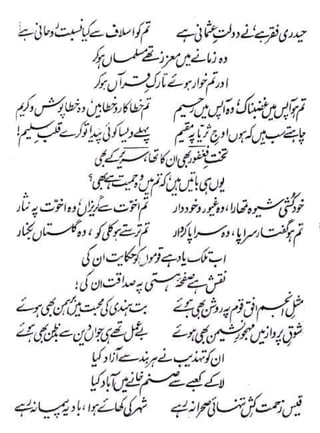 حیدری فقر ہے نے دولتِ عثمانی ہے تم کو اسلاف سے کیا نسبتِ روحانی ہے
وہ زمانے میں معزز تھے مسلماں ہو کر
اور تم خوار ہوئے تارکِ قرآں ہو کر
تم ہو آپس میں غضبناک، وہ آپس میں رحیم تم خطاکار و خطابیں، وہ خطاپوش و کریم
چاہتے سب ہیں کہ ہوں اوجِ ثریا پہ مقیم پہلے ویسا کوئی پیدا تو کرے قلبِ سلیم!
تختِ فغفور بھی ان کا تھا، سریرِ کے بھی
یوں ہی باتیں ہیں کہ تم میں وہ حمیت ہے بھی؟
خودکشی شیوہ تمھارا، وہ غیور و خوددار تم اخوت سے گریزاں، وہ اخوت پہ نثار
تم ہو گفتار سراپا، وہ سراپا کردار تم ترستے ہو کلی کو، وہ گلستاں بکنار
اب تلک یاد ہے قوموں کو حکایت ان کی
نقش ہے صفحۂ ہستی پہ صداقت ان کی!
مثلِ انجم افقِ قوم پہ روشن بھی ہوئے بتِ ہندی کی محبت میں برہمن بھی ہوئے
شوقِ پرواز میں مہجورِ نشیمن بھی ہوئے بے عمل تھے ہی جواں دین سے بدظن بھی ہوئے
ان کو تہذیب نے ہر بند سے آزاد کیا
لا کے کعبے سے صنم خانے میں آباد کیا
قیس زحمت کشِ تنہائیِ صحرا نہ رہے شہر کی کھائے ہوا، بادیہ پیما نہ رہے